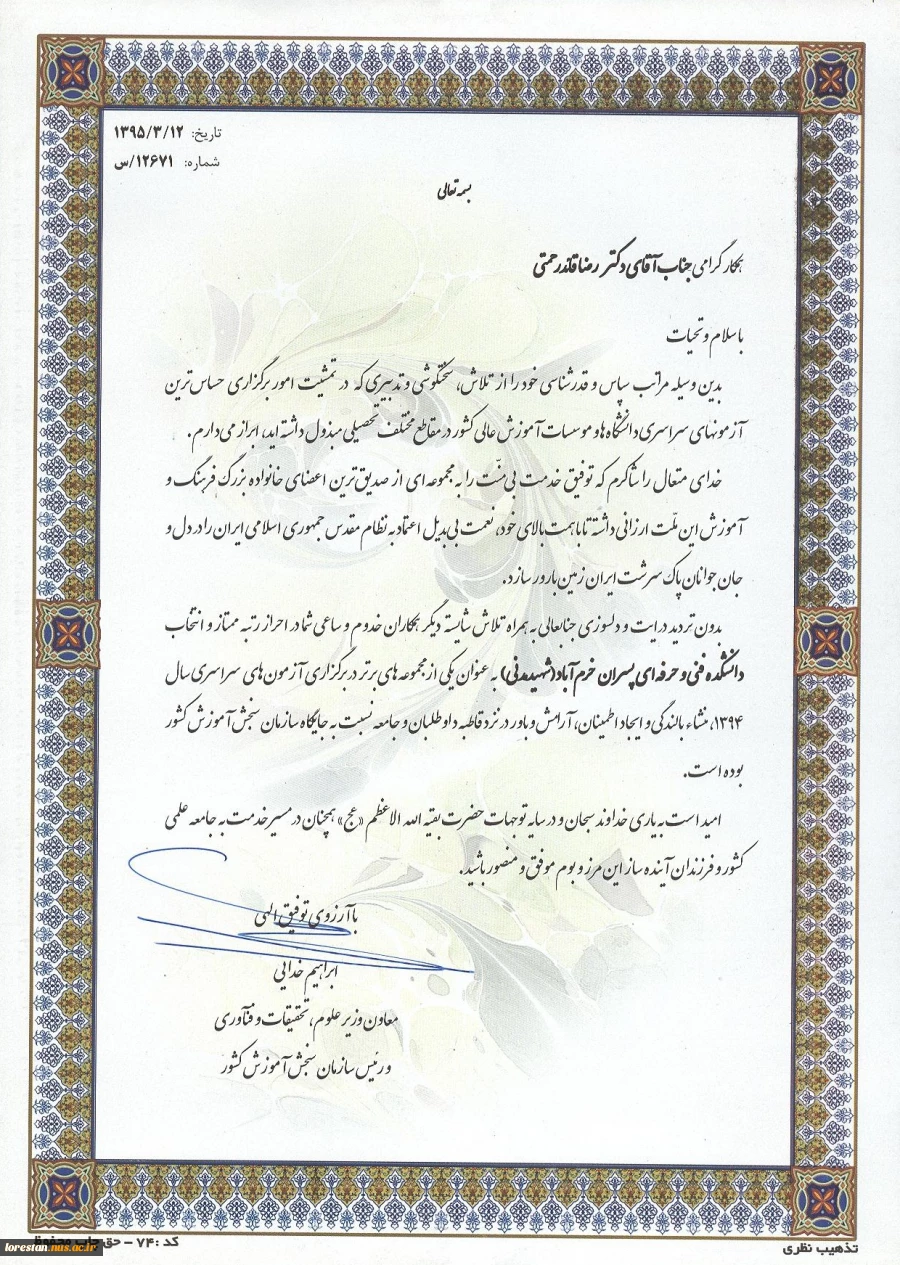 تاریخ: ۱۳۹۵/۳/۱۲
شماره: ۱۲۶۷۱/س
بسمه تعالی
همکار گرامی جناب آقای دکتر رضا قائدرحمتی
با سلام و تحیات
بدین وسیله مراتب سپاس و قدرشناسی خود را از تلاش، سختکوشی و تدبیری که در تمشیت امور برگزاری حساس ترین
آزمونهای سراسری دانشگاه ها و موسسات آموزش عالی کشور در مقاطع مختلف تحصیلی مبذول داشته اید، ابراز می دارم.
خدای متعال را شاکرم که توفیق خدمت بی منّت را به مجموعه ای از صدیق ترین اعضای خانواده بزرگ فرهنگ و
آموزش این ملّت ارزانی داشته تا با همت بالای خود، نعمت بی بدیل اعتماد به نظام مقدس جمهوری اسلامی ایران را در دل و
جان جوانان پاک سرشت ایران زمین بارور سازد.
بدون تردید درایت و دلسوزی جنابعالی به همراه تلاش شایسته دیگر همکاران خدوم و ساعی شما در احراز رتبه ممتاز و انتخاب
دانشکده فنی و حرفه ای پسران خرم آباد (شهید مدنی) به عنوان یکی از مجموعه های برتر در برگزاری آزمون های سراسری سال
۱۳۹۴، منشاء بالندگی و ایجاد اطمینان، آرامش و باور در نزد قاطبه داوطلبان و جامعه نسبت به جایگاه سازمان سنجش آموزش کشور
بوده است.
امید است به یاری خداوند سبحان و در سایه توجهات حضرت بقیه الله الاعظم «عج» همچنان در مسیر خدمت به جامعه علمی
کشور و فرزندان آینده ساز این مرز و بوم موفق و منصور باشید.
با آرزوی توفیق الهی
ابراهیم خدایی
معاون وزیر علوم، تحقیقات و فنّآوری
و رئیس سازمان سنجش آموزش کشور
تذهیب نظری
کد :۷۴ - حق چاپ محفوظ
lorestan.nus.ac.ir